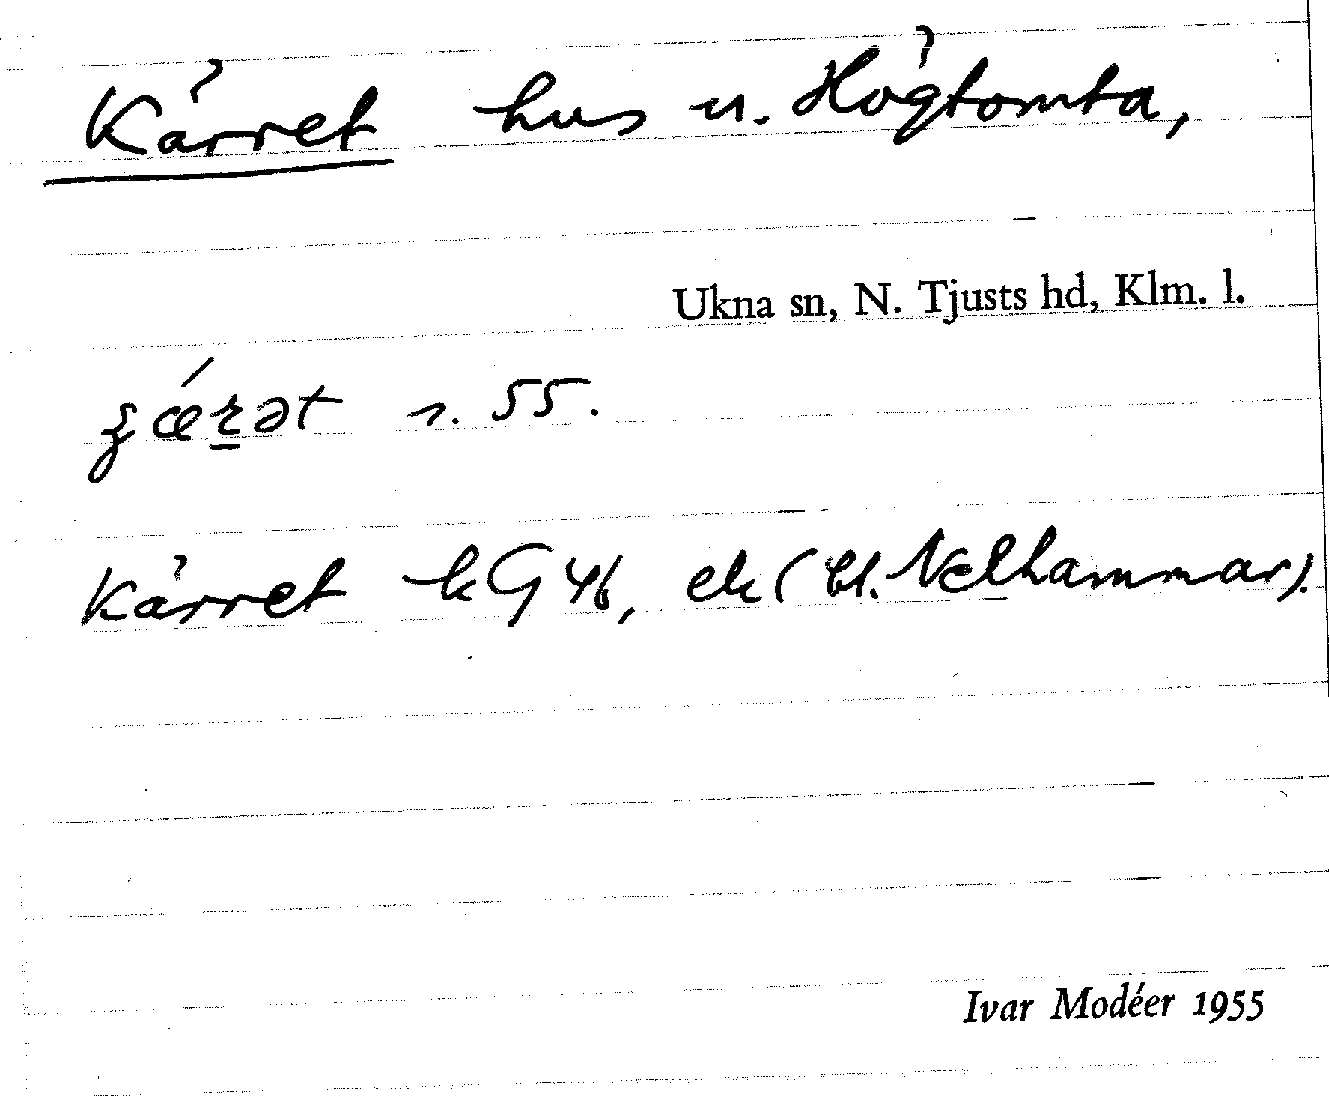 Kärret hus u. Högtomta,
Ukna sn, N. Tjusts hd, Klm. l.
s. 55.
Kärret kG 46, ek (bl. Nelhammar).
Ivar Modéer 1955